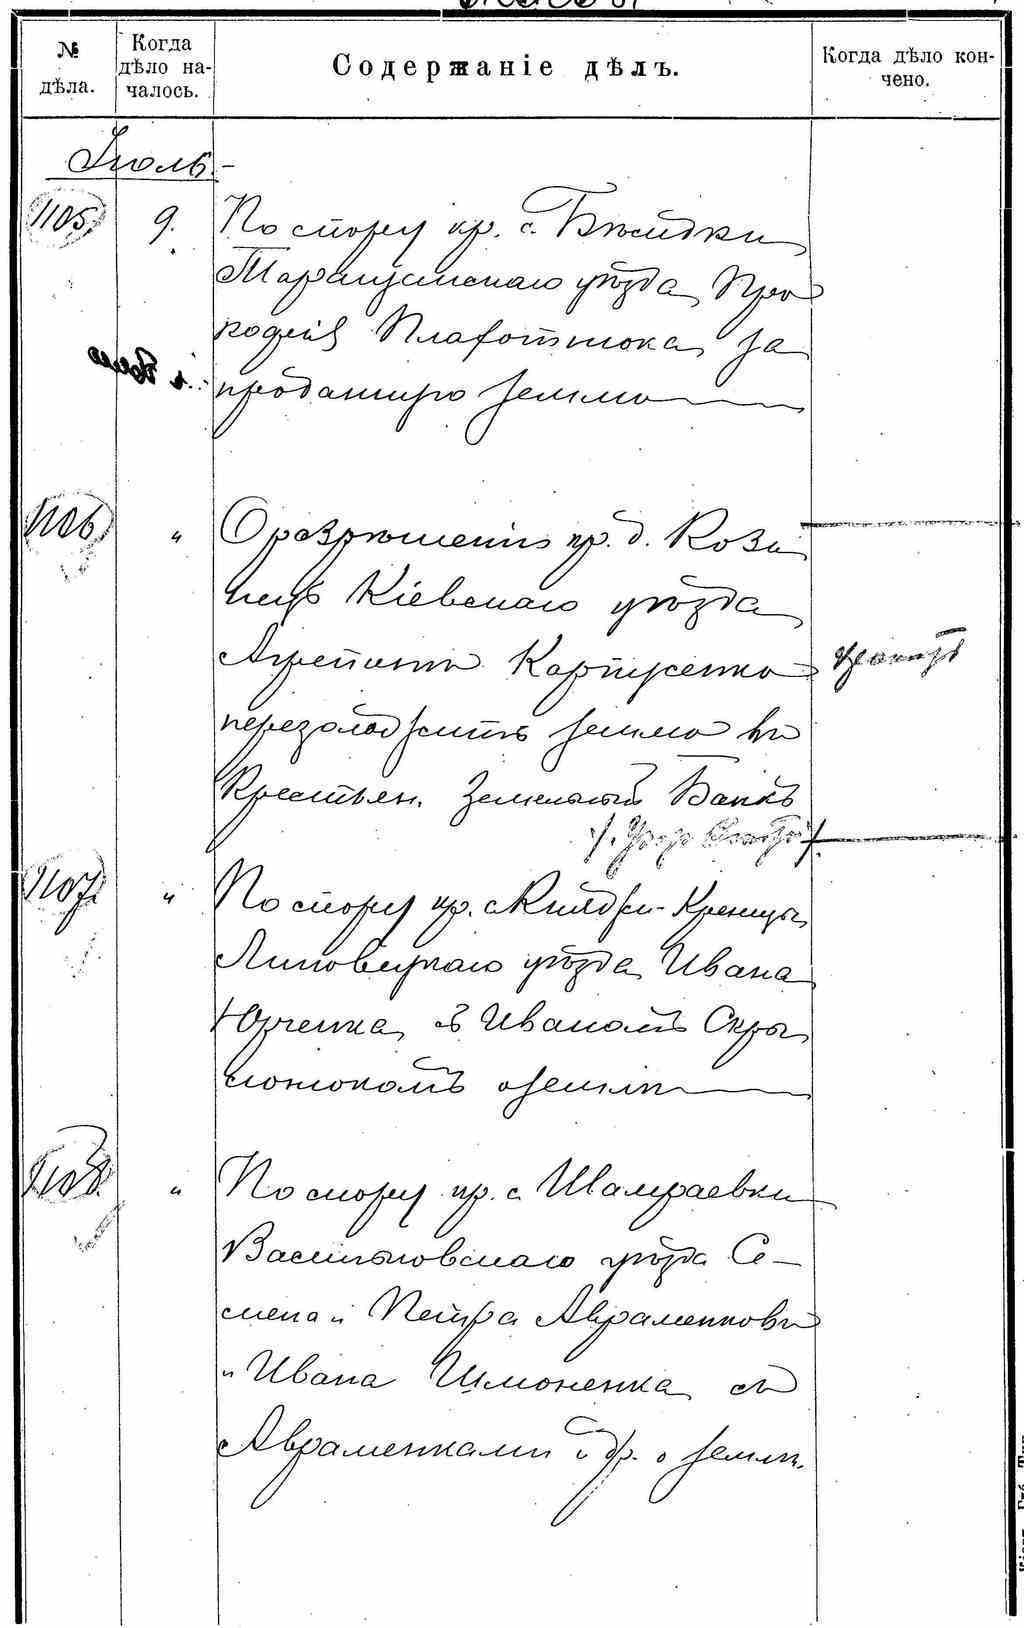 № дѣла.
Когда дѣло на-
чалось.
Содержаніе дѣлъ.
Когда дѣло кон-
чено.
Іюль.-
1105
9.
По спору кр. с.
Таращанскаго уѣзда Про
кофія за
проданную землю
1106
"
О разрѣшеніи кр. д. Кози
нецъ Кіевскаго уѣзда
Агрепинѣ Карпусенко
перезаложить землю въ
Крестьян. Земельный Банкъ
1107
"
По спору кр. с. Кичтджи-Креницы
Липовецкаго уѣзда Ивана
Юрченка съ Иваномъ Скры
о землѣ
1108
"
По спору кр. с. Шамраевки
Васильковскаго уѣзда Се-
мена и Петра Авраменковъ
и Ивана Шмоненка съ
Авраменками и др. о землѣ.